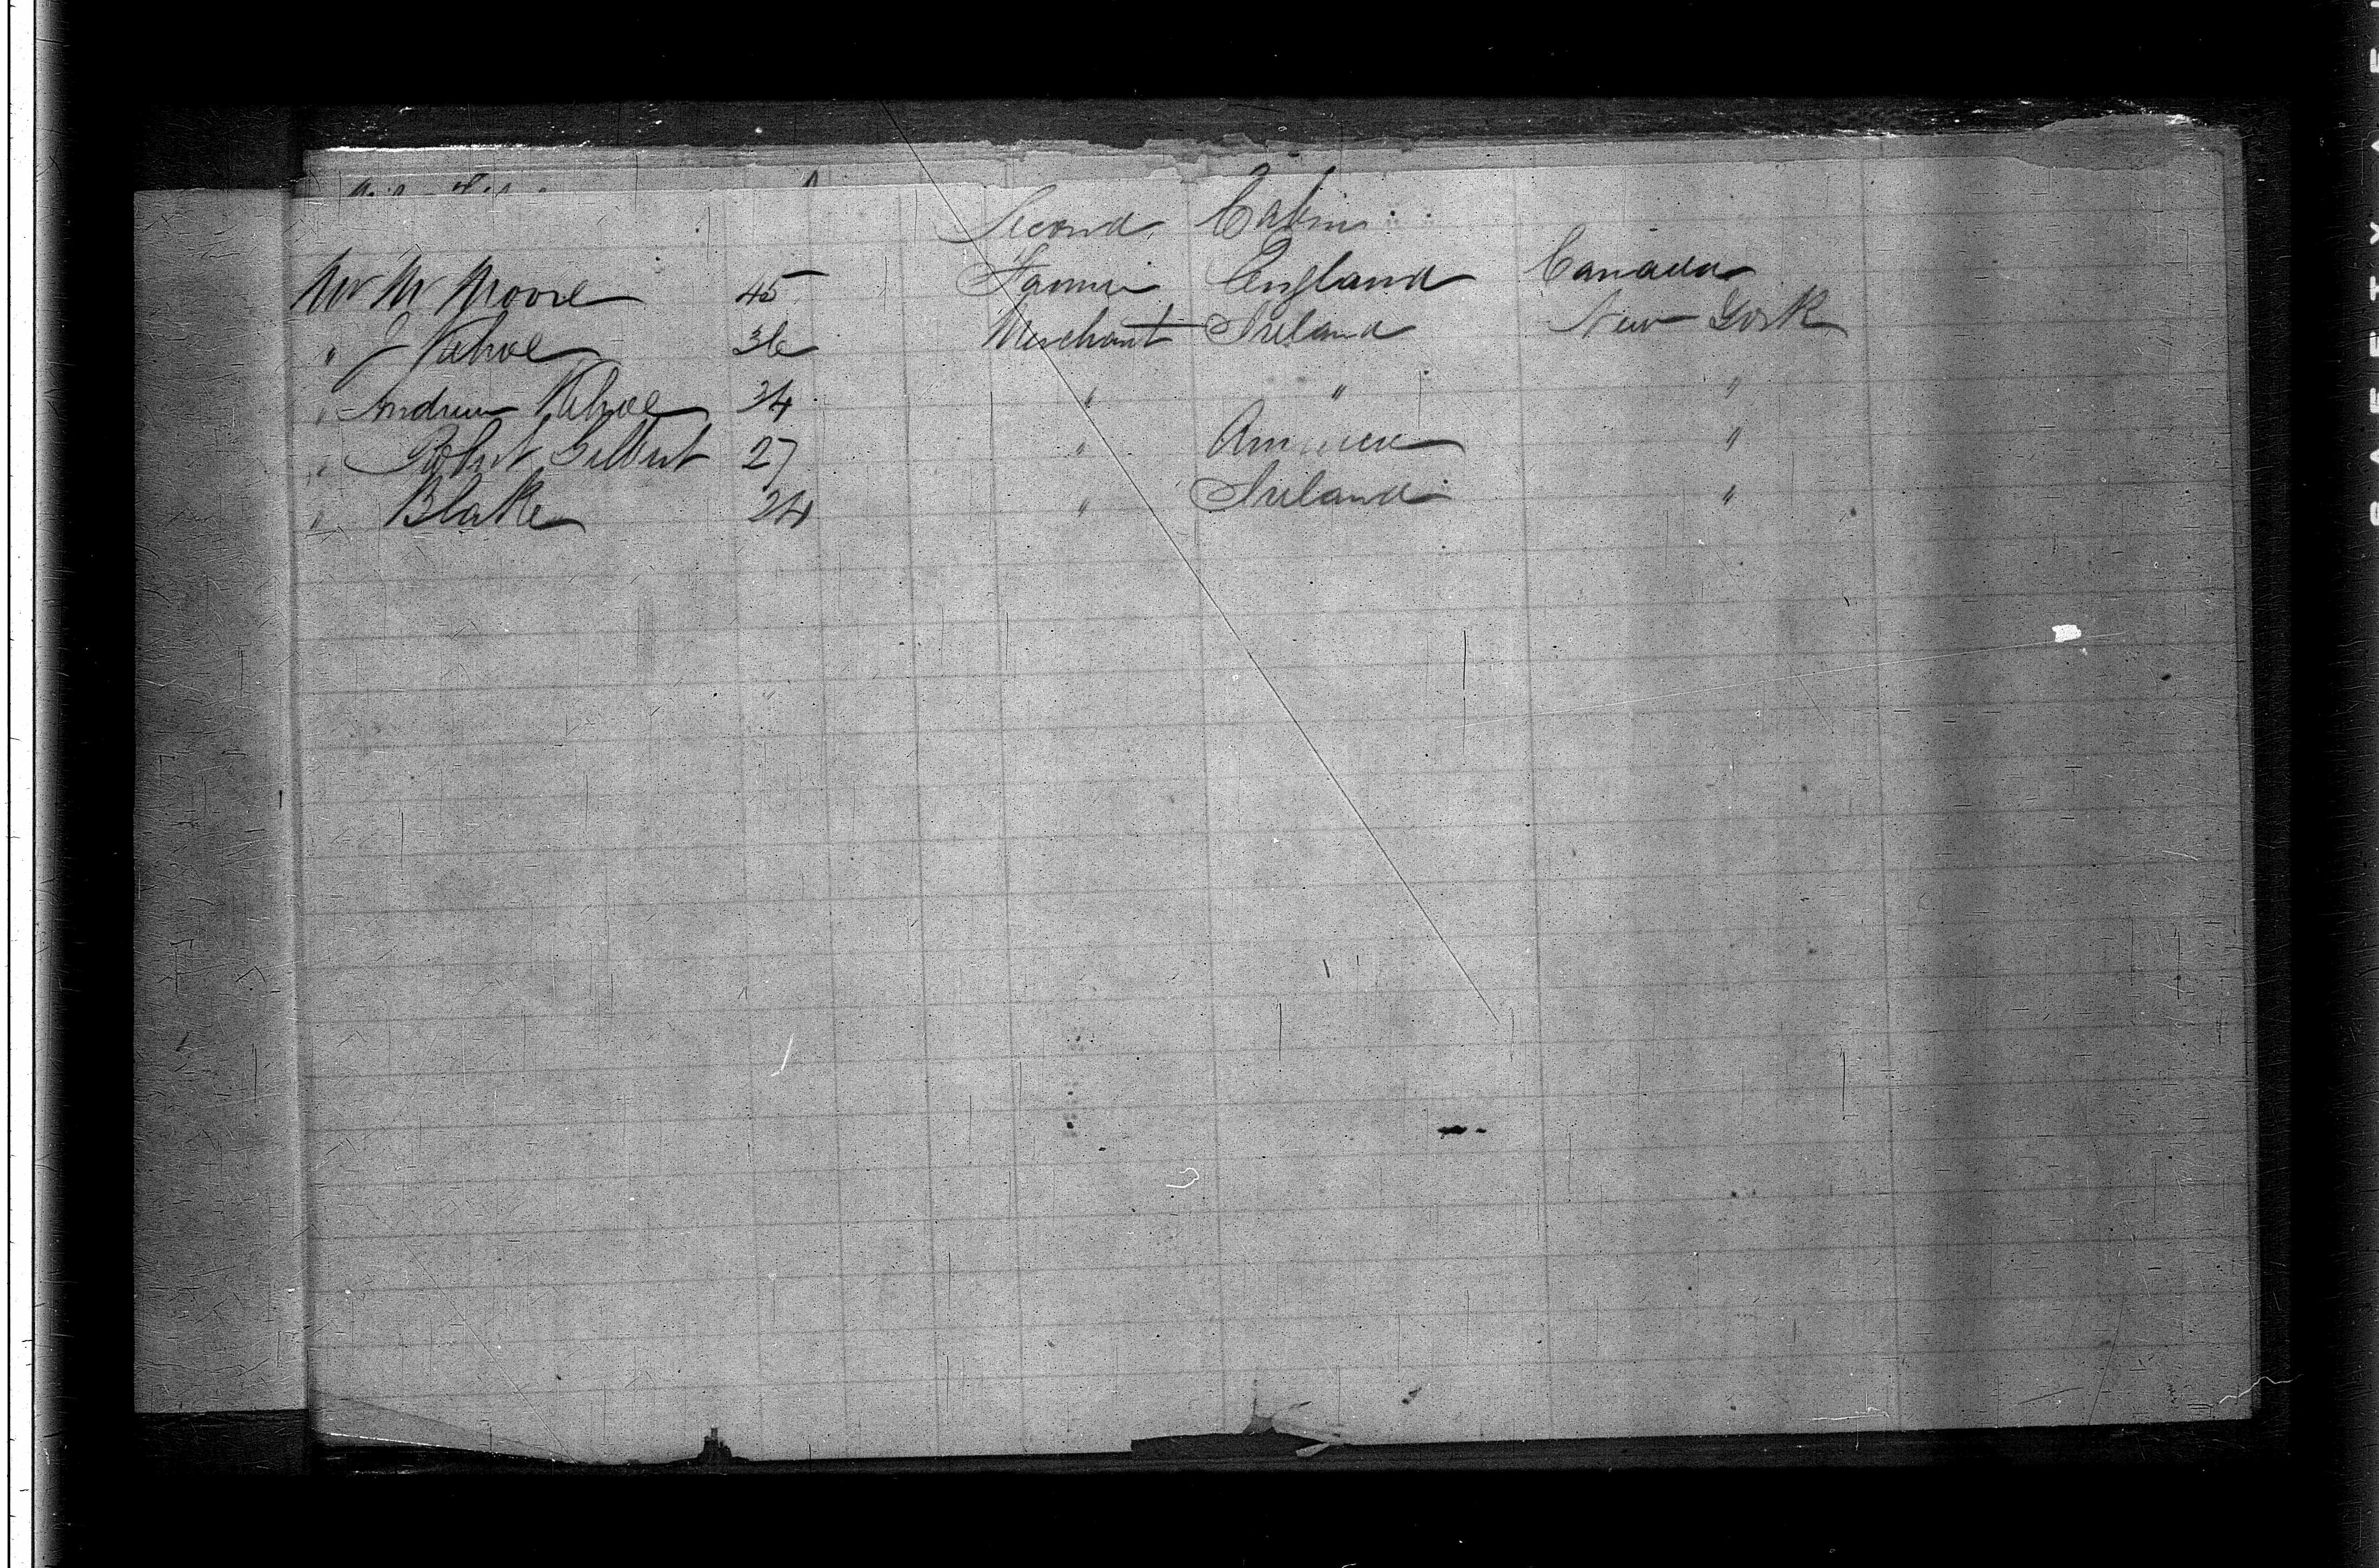 Second Cabin
Mr M Moore 45 Farmer England Canada
" J Kehoe 36 Merchant Ireland New York
" Andrew Kehoe 34 " " "
" Robert Gilbert 27 " America "
" Blake 24 " Ireland "